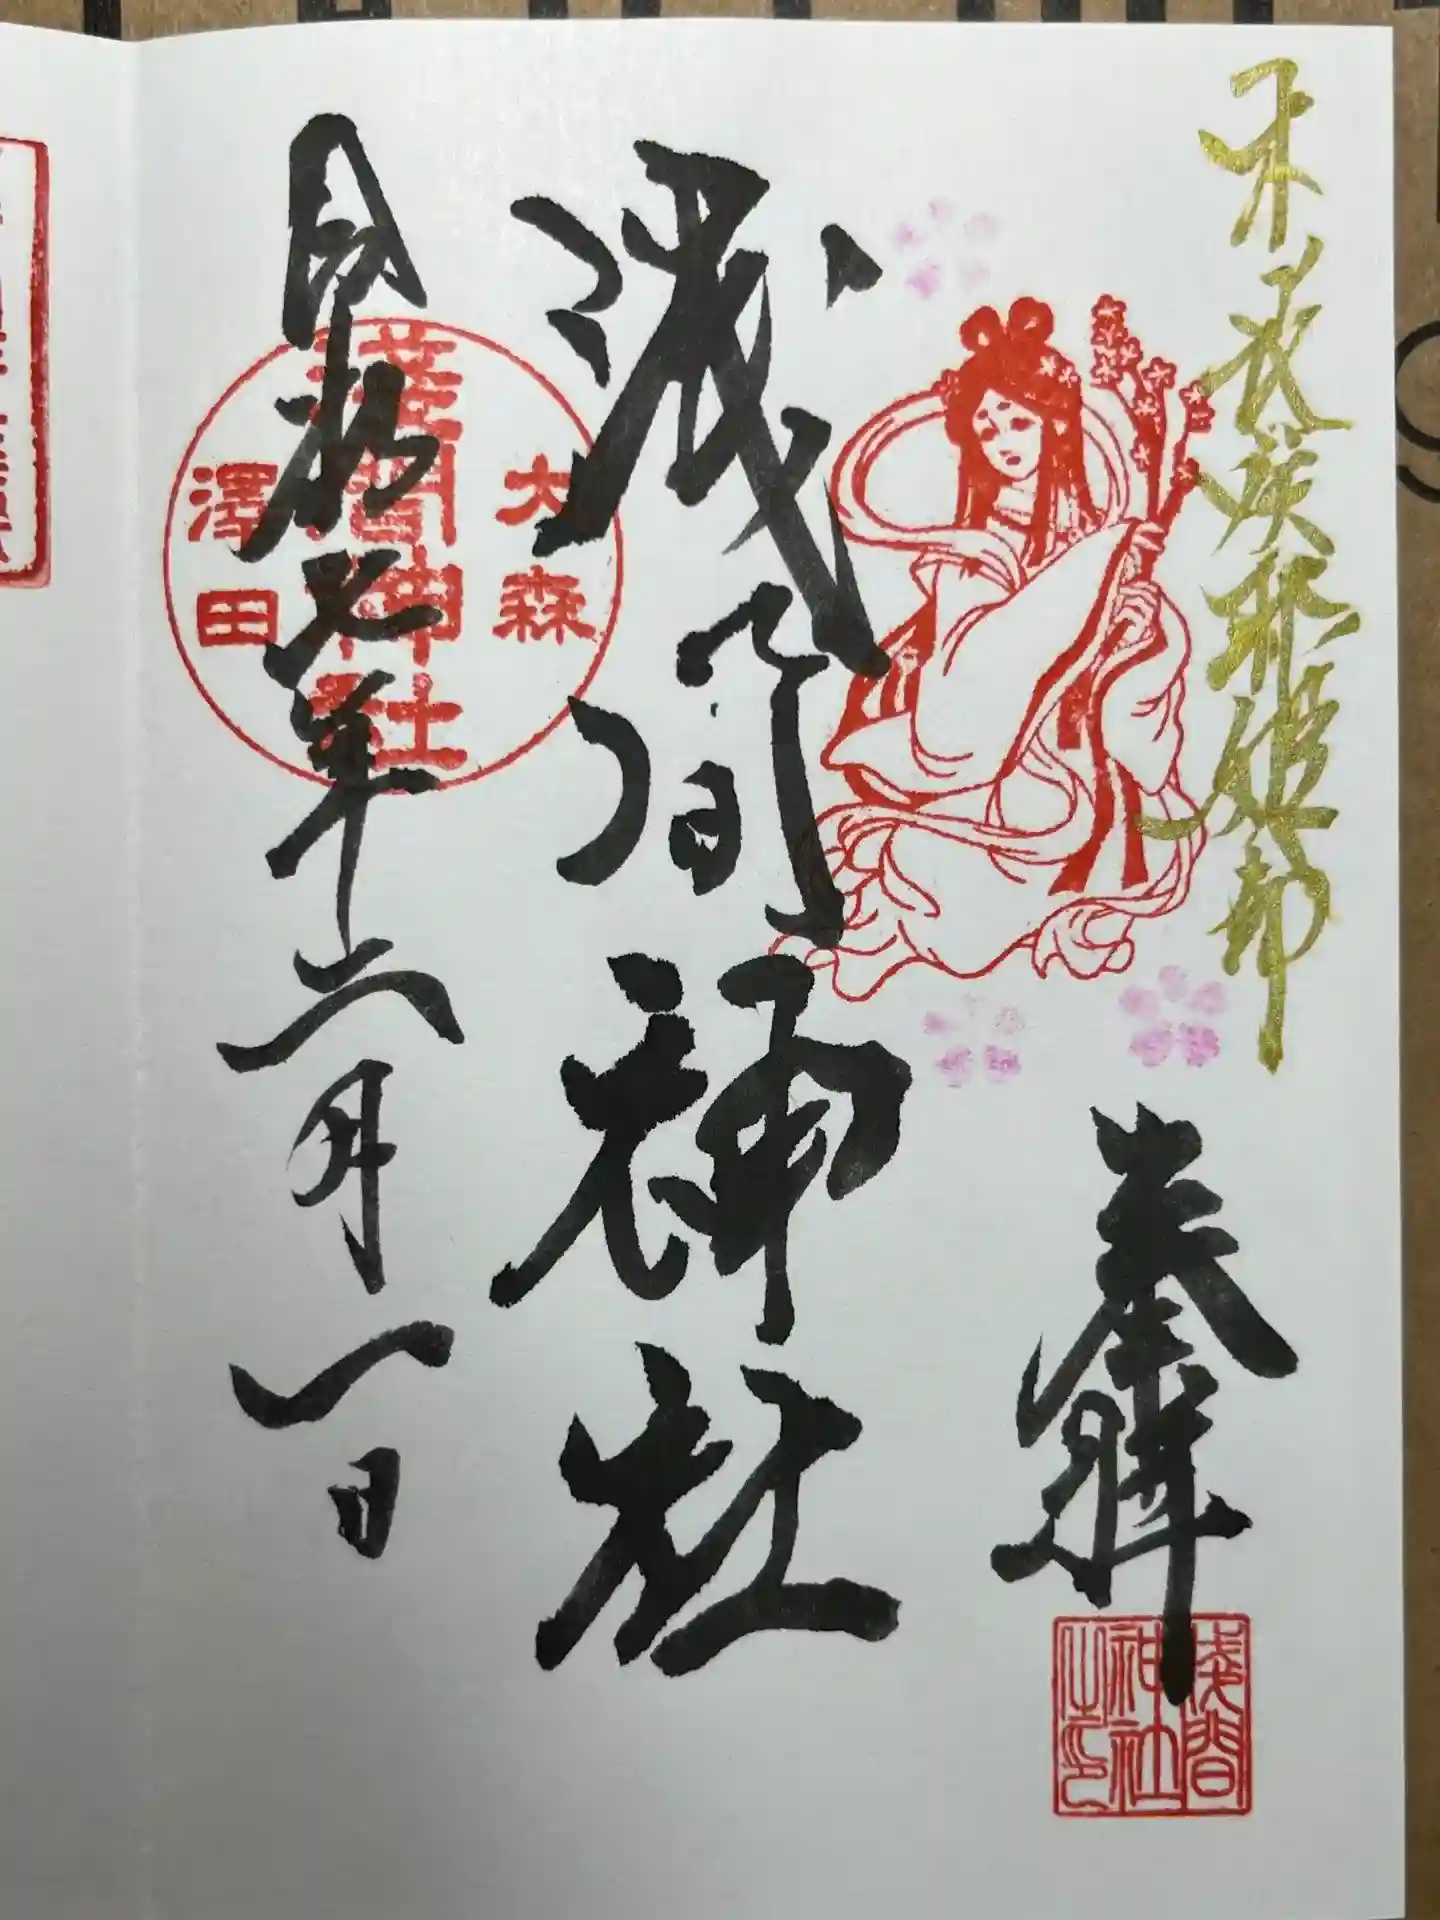 木花咲耶姫命
奉拝
浅間
神社
之印
浅間神社
大森
淺間神社
澤田
令和七年六月一日